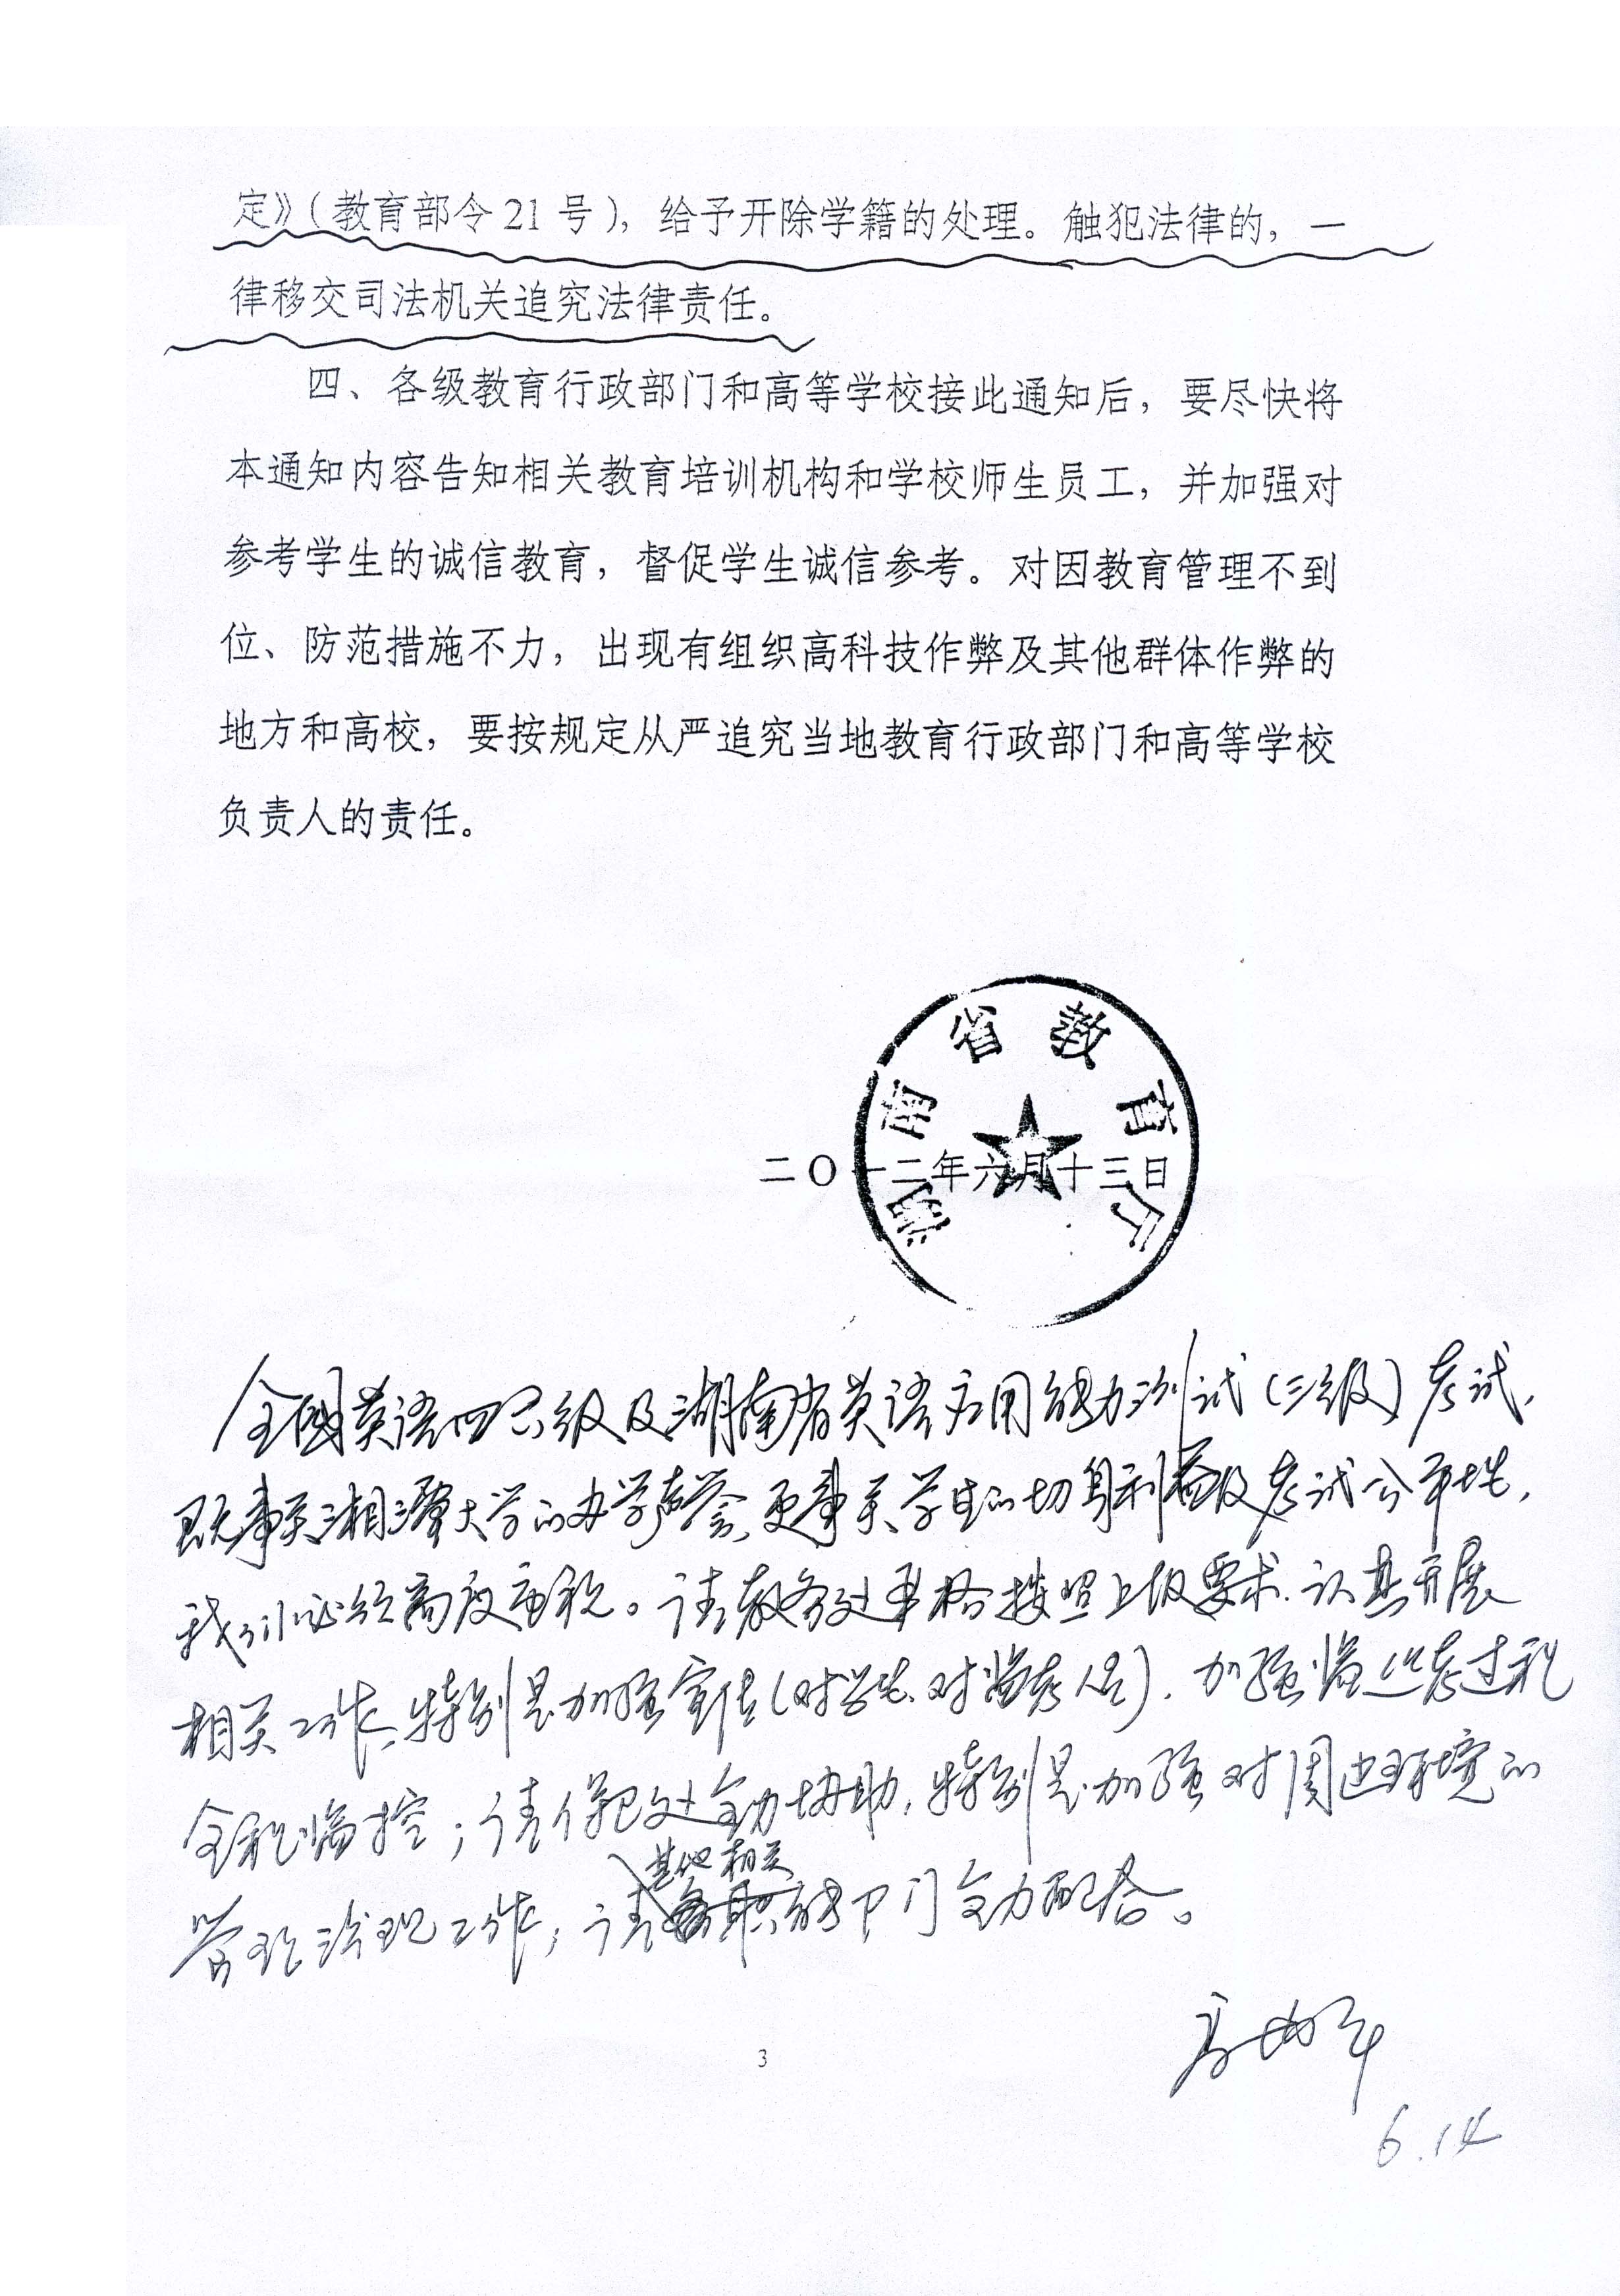 定》（教育部令 21 号），给予开除学籍的处理。触犯法律的，一
律移交司法机关追究法律责任。
四、各级教育行政部门和高等学校接此通知后，要尽快将
本通知内容告知相关教育培训机构和学校师生员工，并加强对
参考学生的诚信教育，督促学生诚信参考。对因教育管理不到
位、防范措施不力，出现有组织高科技作弊及其他群体作弊的
地方和高校，要按规定从严追究当地教育行政部门和高等学校
负责人的责任。
湖南省教育厅
二〇一二年六月十三日
全国英语四六级及湖南省英语应用能力测试（三级）考试，
既事关湘潭大学的办学声誉，更事关学生的切身利益及考试公平性，
我们必须高度重视。请教务处严格按照上级要求，认真开展
相关工作，特别是加强宣传（对学生、对监考人员），加强监巡考过程
全程监控；请保卫处全力协助，特别是加强对周边环境的
管理治理工作；请其他相关职能部门全力配合。
3
6.14